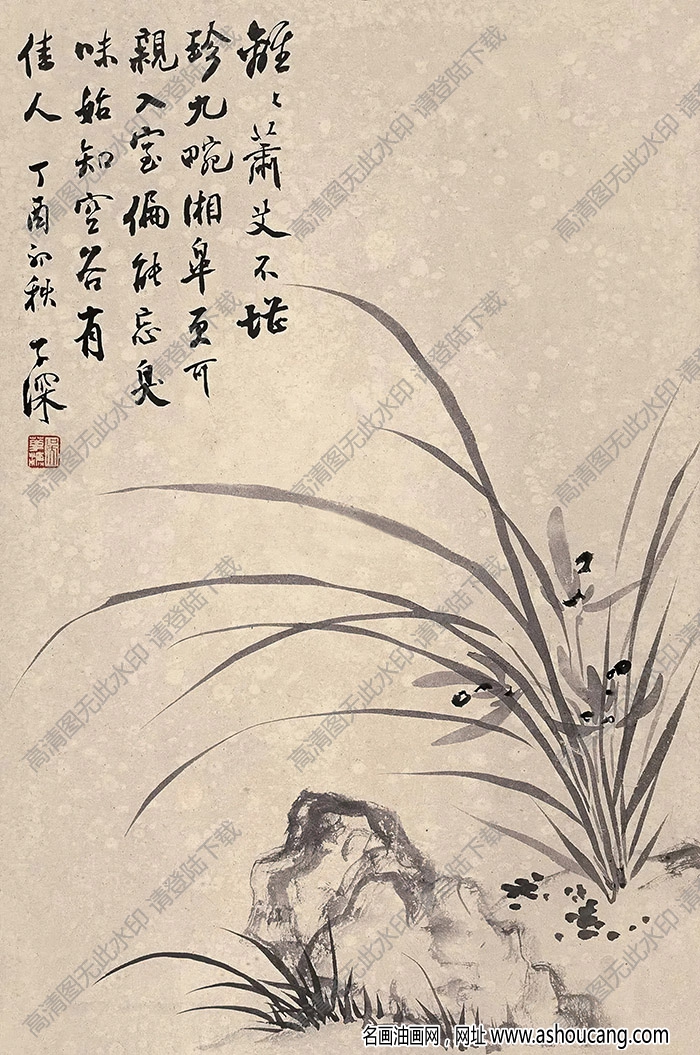 離〻蕭艾不堪
珍九畹湘皋更可
親入室偏能忘臭
味始知空谷有
佳人 丁酉初秋 子深
高清图无此水印 请登陆下载
名画油画网，网址 www.ashoucang.com